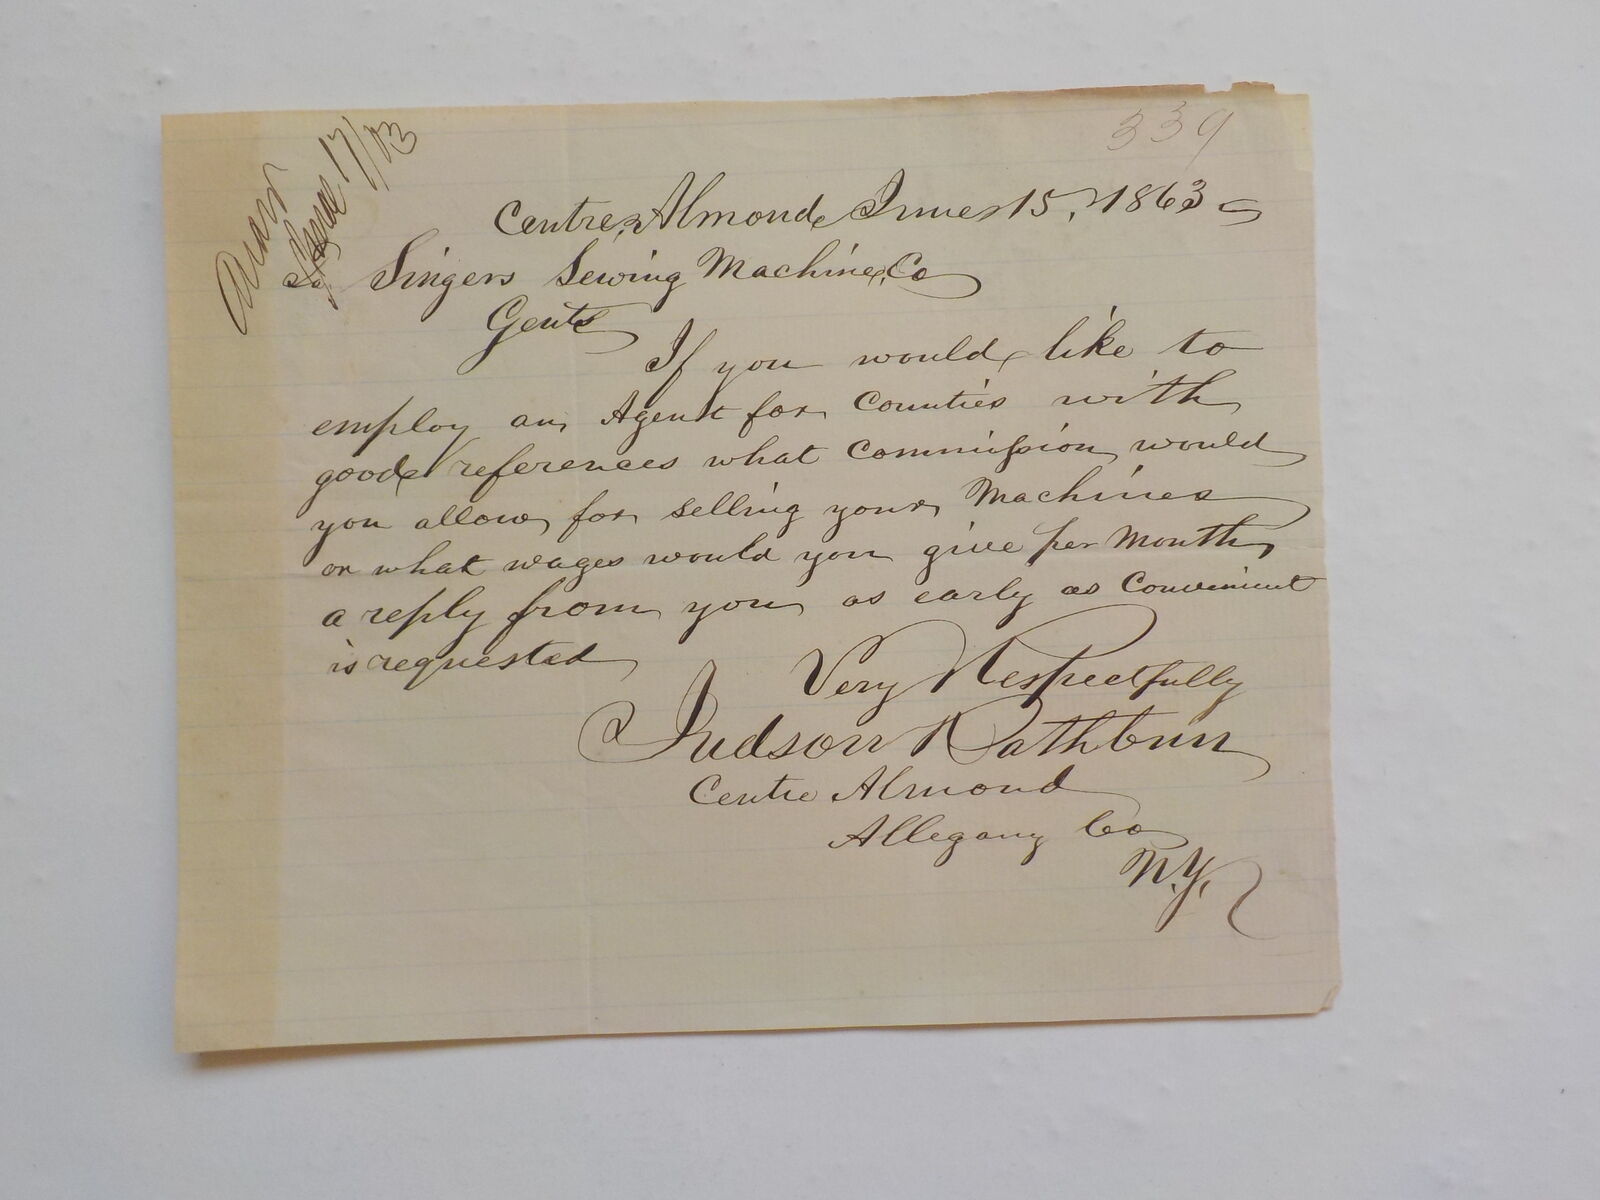 339
Answ
June 17/63
Centre, Almond June 15, 1863
To Singers Sewing Machine, Co
Gents
If you would like to
employ an Agent for Counties with
good references what Commission would
you allow for selling your Machines
or what wages would you give per Month
a reply from you as early as Convenient
is requested
Very Respectfully
Judson Rathbun
Centre Almond
Allegany Co
N.Y.